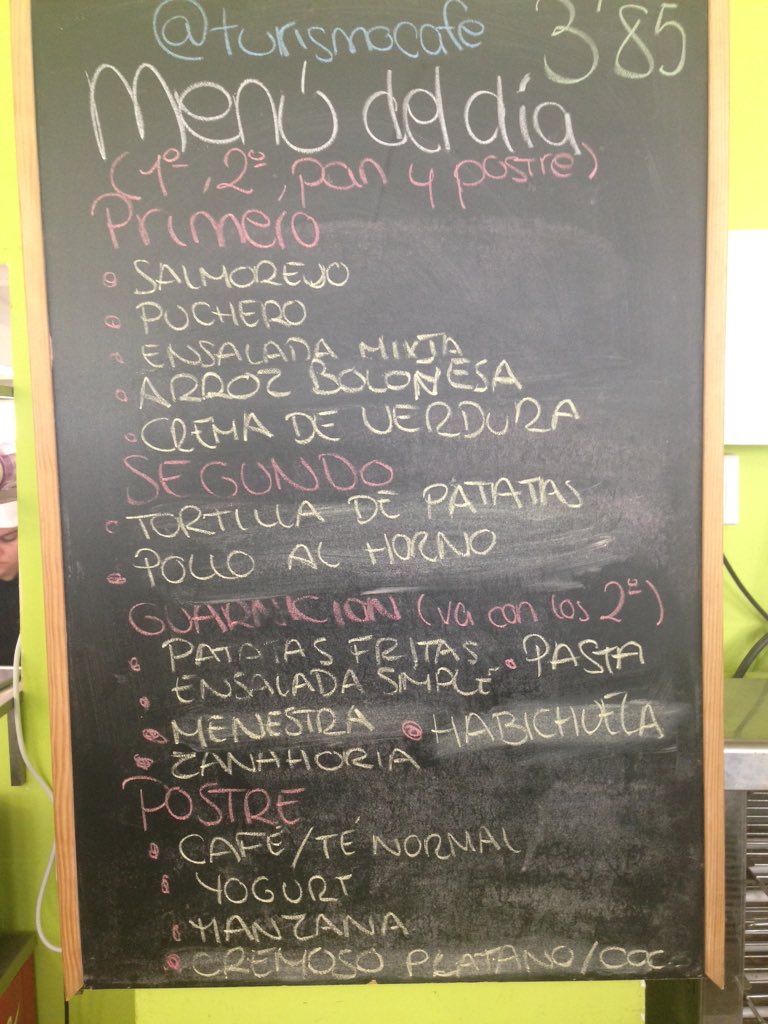 @turismocafe 3'85
Menú del día
(1º, 2º, pan y postre)
Primero
• SALMOREJO
• PUCHERO
• ENSALADA MIXTA
• ARROZ BOLOÑESA
• CREMA DE VERDURA
SEGUNDO
• TORTILLA DE PATATAS
• POLLO AL HORNO
GUARNICION (va con los 2º)
• PATATAS FRITAS • PASTA
• ENSALADA SIMPLE
• MENESTRA • HABICHUELA
• ZANHHORIA
POSTRE
• CAFÉ/TÉ NORMAL
• YOGURT
• MANZANA
• CREMOSO PLATANO/COC